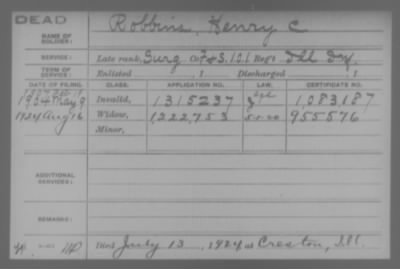 DEAD
NAME OF SOLDIER: Robbins, Henry C
SERVICE: Late rank, Surg Co. F & S. 101 Reg't Ill Inf.
TERM OF SERVICE: Enlisted , 1 Discharged , 1
DATE OF FILING. CLASS. APPLICATION NO. LAW. CERTIFICATE NO.
1904 May 9 Invalid, 1315237 1,083,187
1924 Aug 16 Widow, 1222,753 955576
Minor,
ADDITIONAL SERVICES:
REMARKS:
Died July 13, 1924 at Creston, Ill.